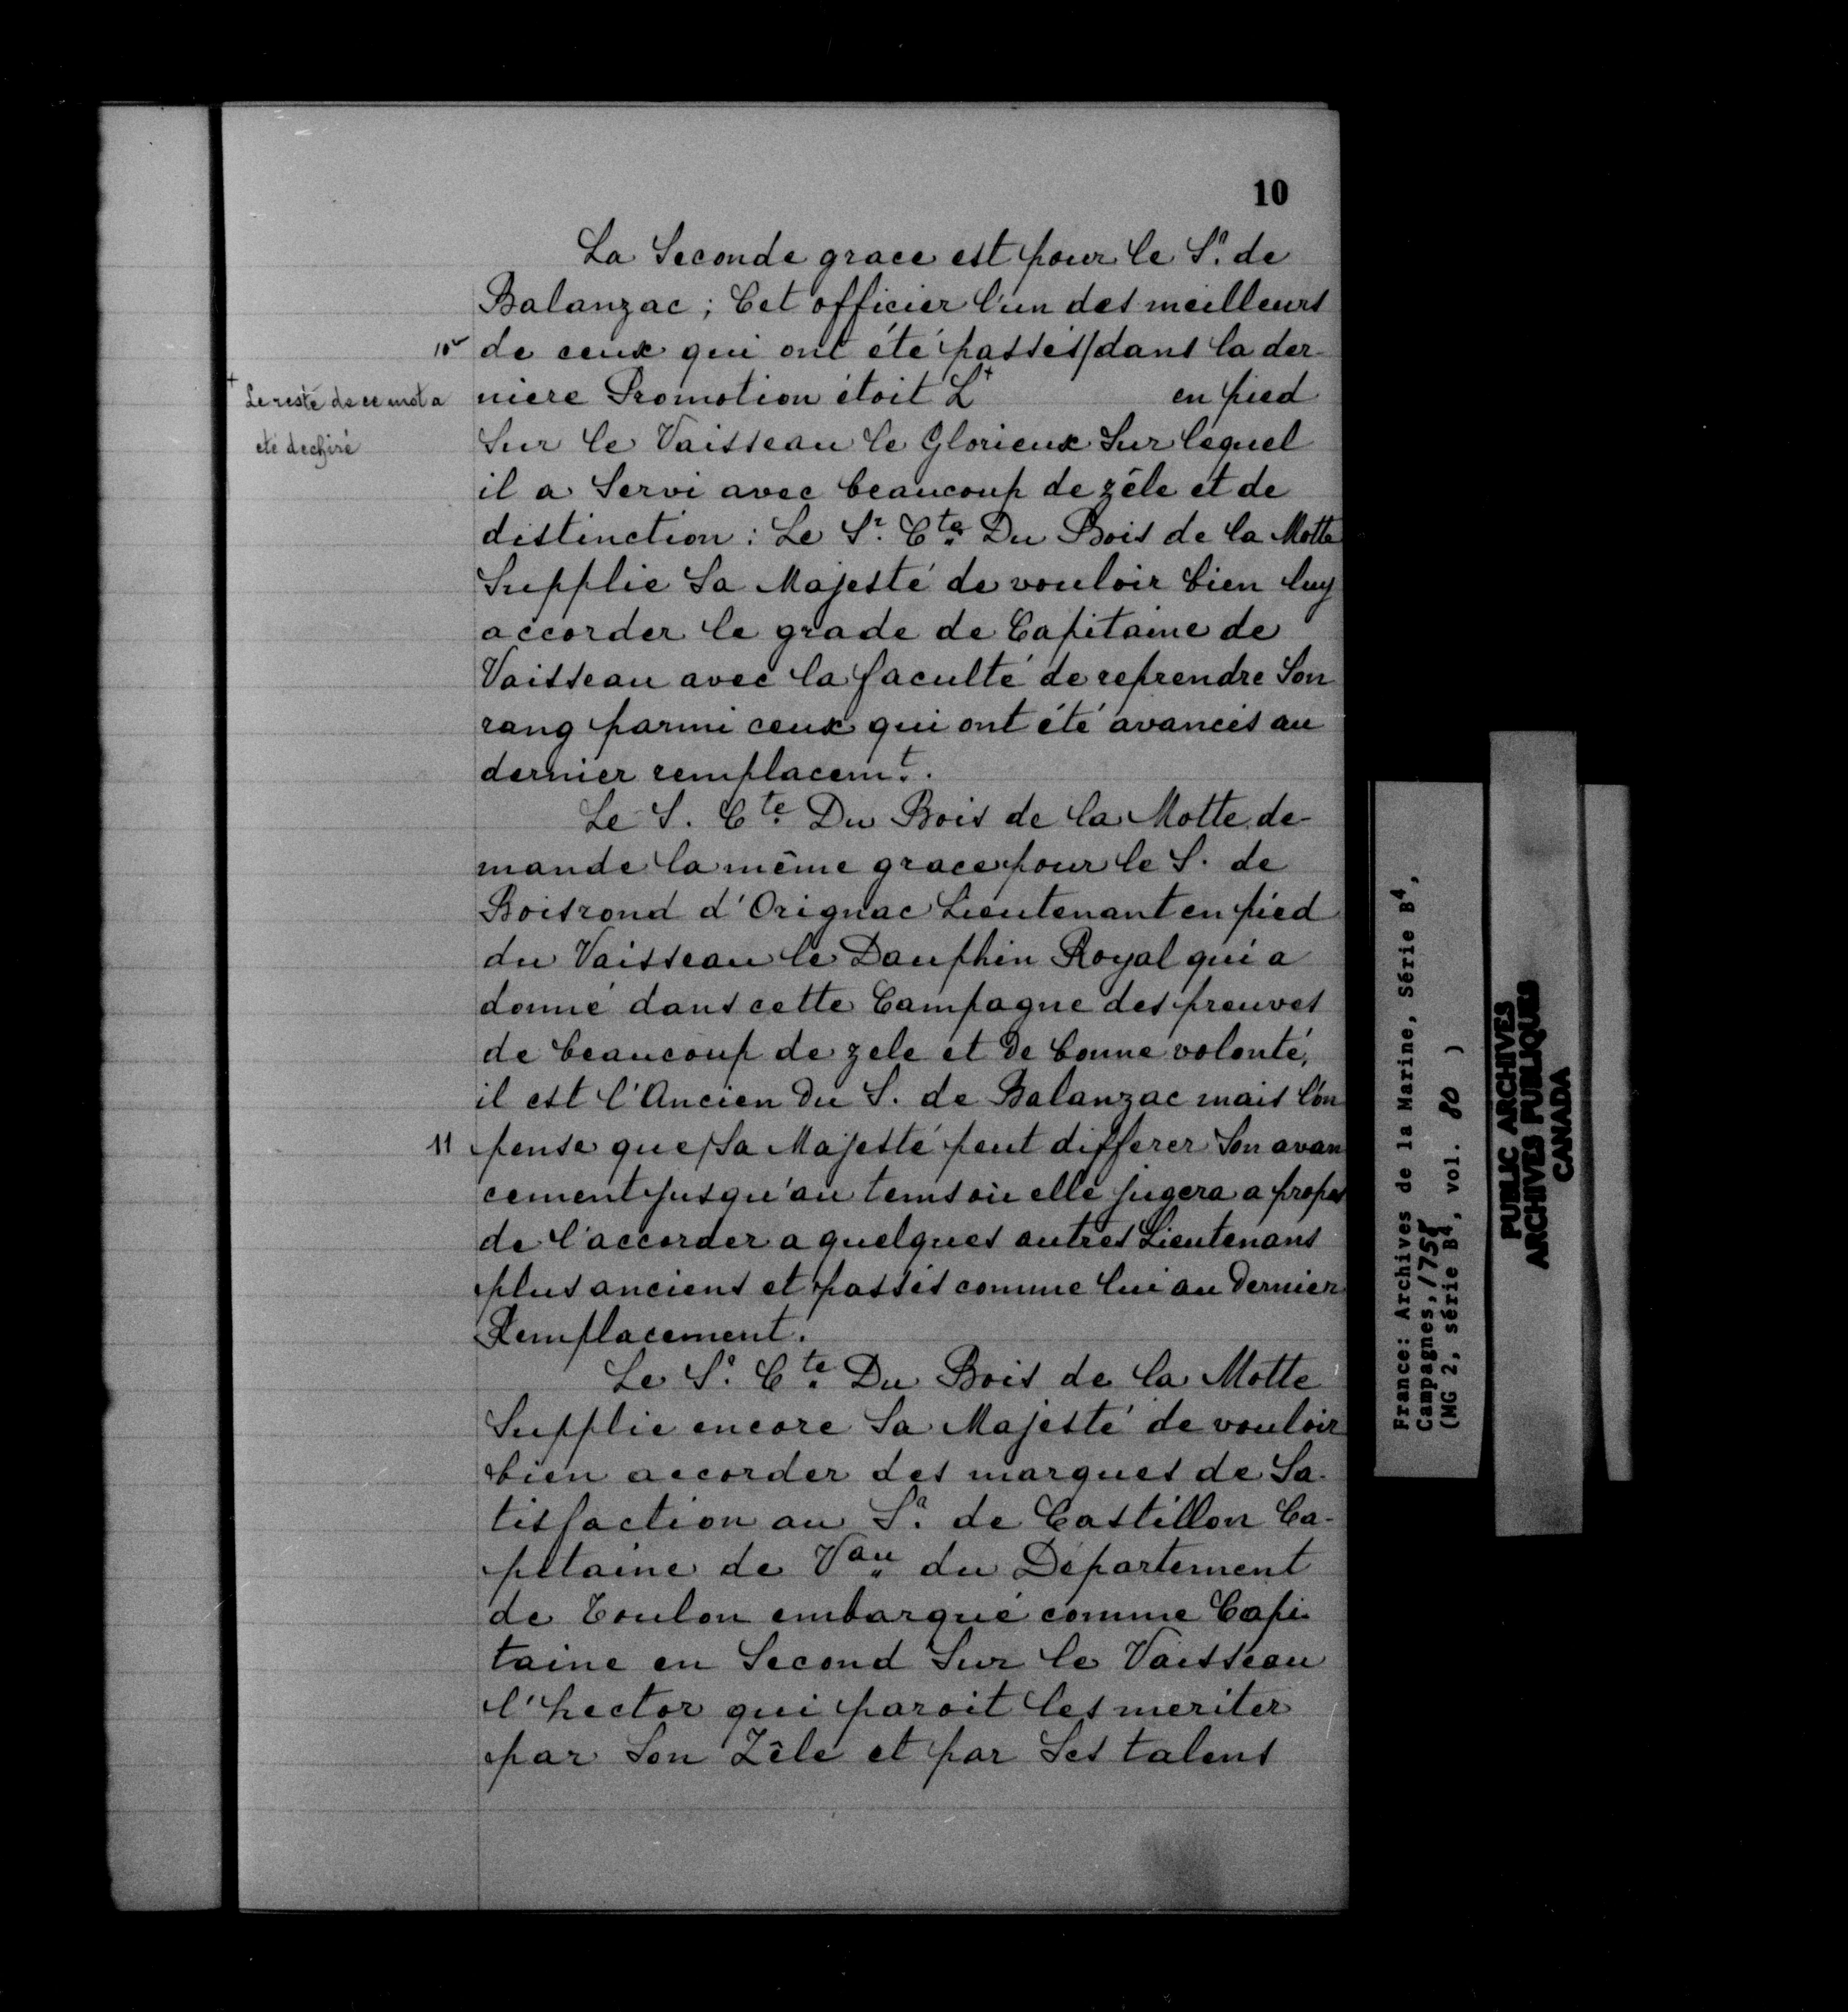 10
La Seconde grace est pour le S.r de
Balanzac ; Cet officier l'un des meilleurs
10v de ceux qui ont été passés/dans la der-
+ Le reste de ce mot a
été dechiré
niere Promotion étoit L+ en pied
Sur le Vaisseau le Glorieux Sur lequel
il a Servi avec beaucoup de zêle et de
distinction : Le S.r C.te Du Bois de la Motte
Supplie Sa Majesté de vouloir bien luy
accorder le grade de Capitaine de
Vaisseau avec la faculté de reprendre Son
rang parmi ceux qui ont été avancés au
dernier remplacem.t.
Le S. C.te Du Bois de la Motte de-
mande la même grace pour le S. de
Boisrond d'Orignac Lieutenant en pied
du Vaisseau le Dauphin Royal qui a
donné dans cette Campagne des preuves
de beaucoup de zele et de bonne volonté,
il est l'Ancien du S. de Balanzac mais l'on
11 pense que/Sa Majesté peut differer Son avan
cement jusqu'au tems où elle jugera a propos
de l'accorder a quelques autres Lieutenans
plus anciens et passés comme lui au dernier
Remplacement.
Le S.r C.te Du Bois de la Motte
Supplie encore Sa Majesté de vouloir
bien accorder des marques de Sa-
tisfaction au S.r de Castillon Ca-
pitaine de V.au du Département
de Toulon embarqué comme Capi-
taine en Second Sur le Vaisseau
l'hector qui paroit les meriter
par Son Zêle et par Ses talens
France: Archives de la Marine, Série B4,
Campagnes, 1758
(MG 2, série B4, vol. 80 )
PUBLIC ARCHIVES
ARCHIVES PUBLIQUES
CANADA